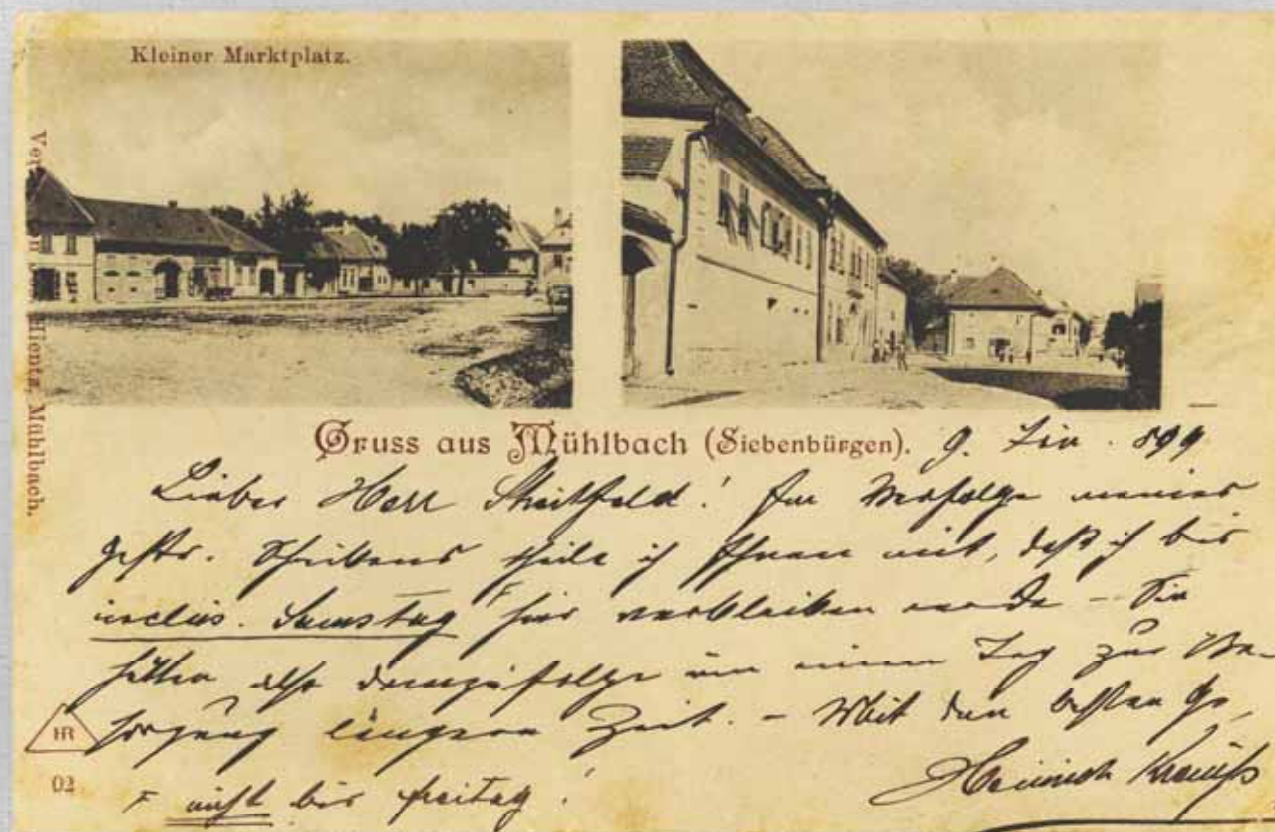 Kleiner Marktplatz.
Hientz, Mühlbach.
Gruss aus Mühlbach (Siebenbürgen).
9. 899
Lieber Herr Streitfeld! Im Verfolge meines
gestr. Schreibens theile ich Ihnen mit, daß ich bis
inclus. Samstag F hier verbleiben werde – Sie
hätten also demzufolge um einen Tag zur Be-
sorgung längere Zeit. – Mit den besten Gr.
HR
Heinrich Krauß
02
F nicht bis Freitag!